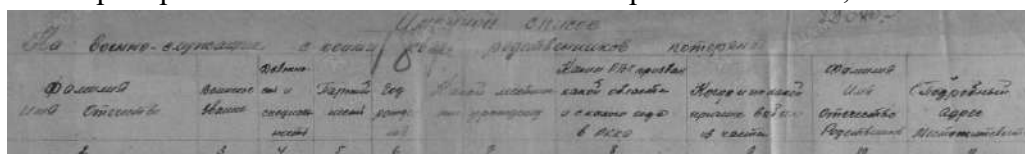 Именной список
На военно-служащих с коими родственников потеряна
Фамилия Имя Отчество
Военное звание
Должность и специальность
Партийность
Год рожд
Какой местности уроженец
Каким РВК призван какой области и с какого года в РККА
Когда и по какой причине выбыл из части
Фамилия Имя Отчество Родственников
Подробный адрес Местожительства
2 3 4 5 6 7 8 9 10 11